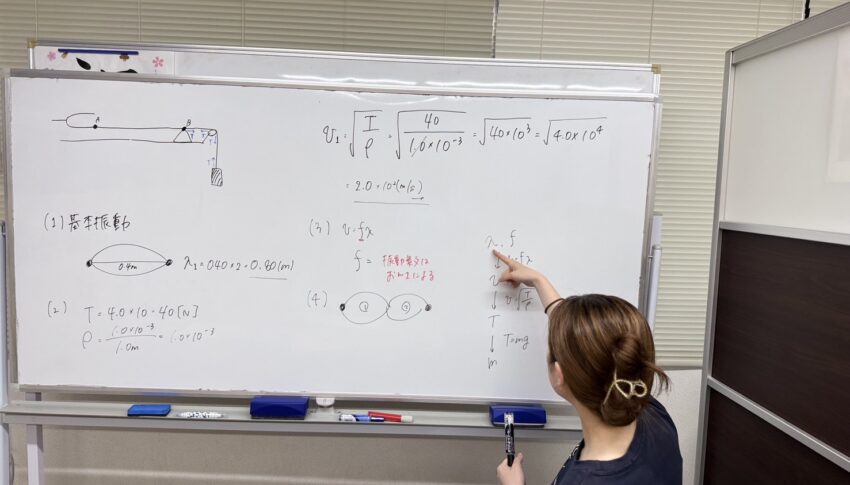 A
B
T
T
T
(1) 基本振動
0.4m
λ₁ = 0.40 × 2 = 0.80 (m)
(2) T = 4.0 × 10 = 40 [N]
ρ = 1.0×10⁻³ / 1.0m = 1.0×10⁻³
v₁ = √(T/ρ) = √(40 / 1.0×10⁻³) = √(40×10³) = √(4.0×10⁴)
= 2.0 × 10² (m/s)
(3) v = fλ
f = 振動数は
おんさによる
(4)
λ, f
↓ v=fλ
v
↓ v=√(T/ρ)
T
↓ T=mg
m